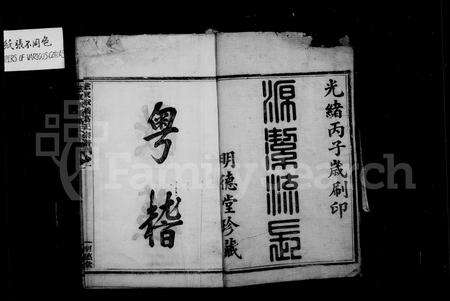 紙張不同色
PAPERS OF VARIOUS COLORS
光緒丙子歲刷印
源繁流長
明德堂珍藏
粵楷
FamilySearch